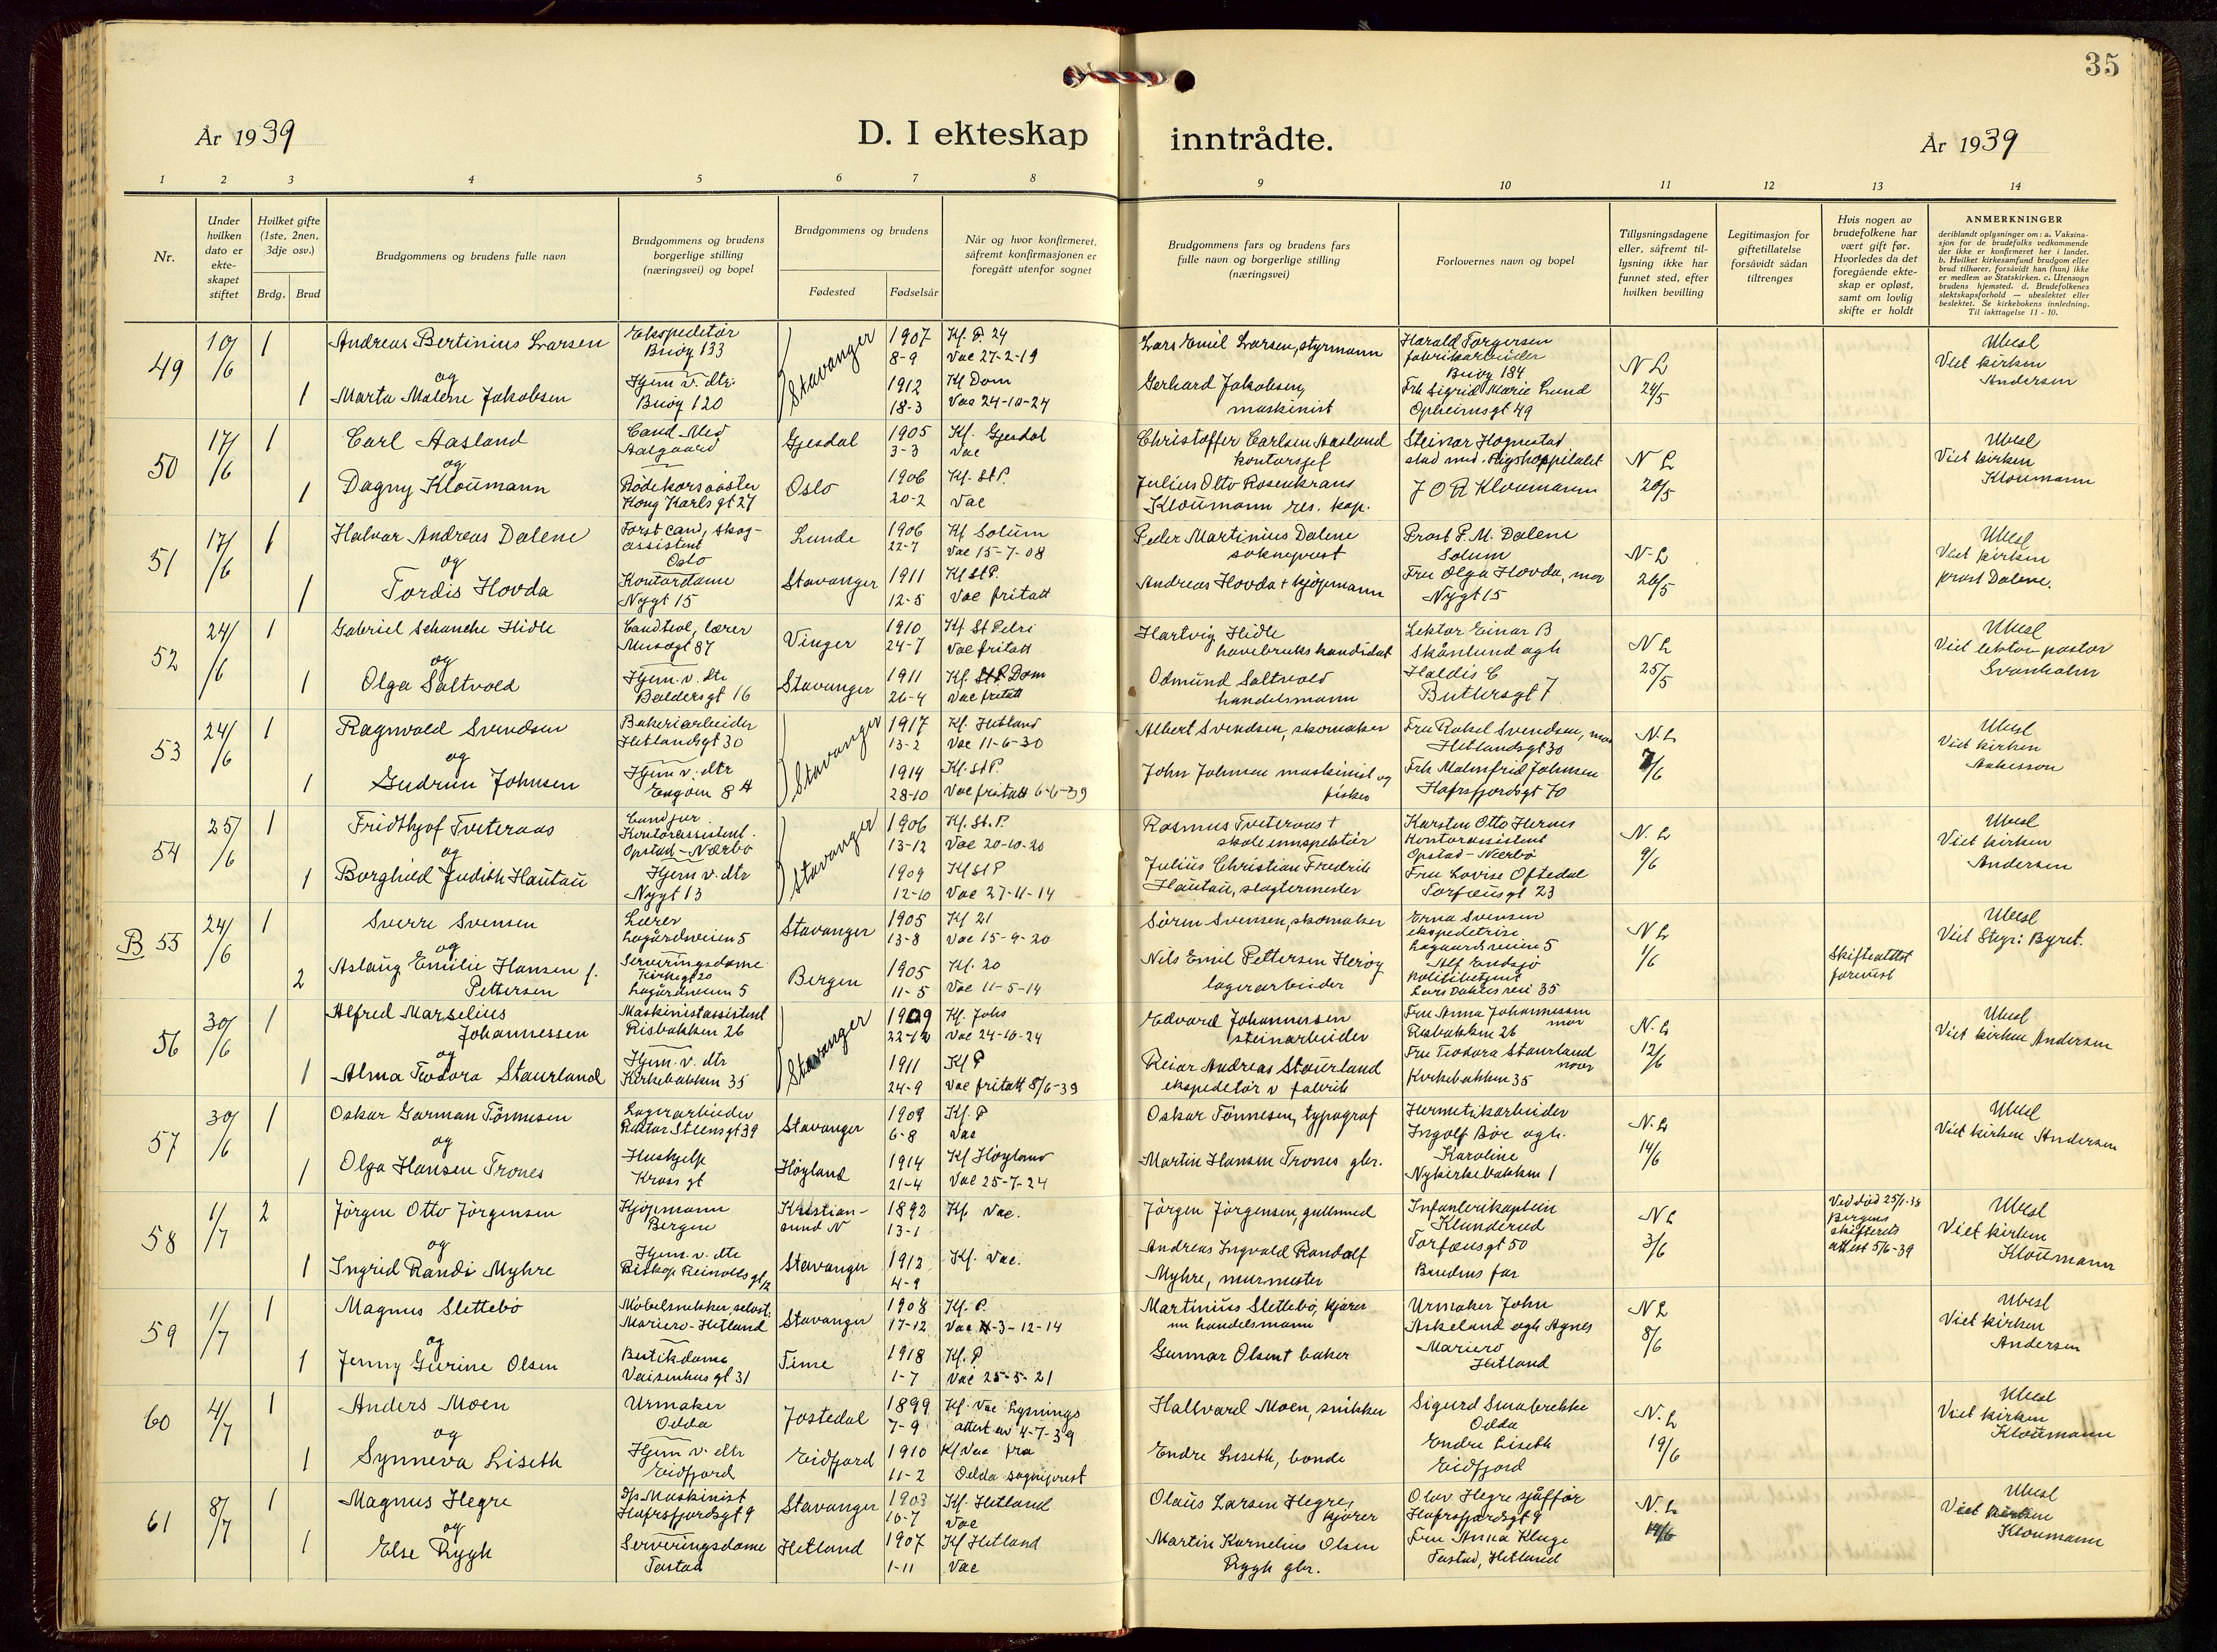 35
År 1939
D. I ekteskap inntrådte.
År 1939
1 2 3 4 5 6 7 8 9 10 11 12 13 14
Nr.
Under hvilken dato er ekte- skapet stiftet
Hvilket gifte (1ste, 2nen, 3dje osv.)
Brdg. Brud
Brudgommens og brudens fulle navn
Brudgommens og brudens borgerlige stilling (næringsvei) og bopel
Brudgommens og brudens
Fødested Fødselsår
Når og hvor konfirmeret, såfremt konfirmasjonen er foregått utenfor sognet
Brudgommens fars og brudens fars fulle navn og borgerlige stilling (næringsvei)
Forlovernes navn og bopel
Tillysningsdagene eller, såfremt til- lysning ikke har funnet sted, efter hvilken bevilling
Legitimasjon for giftetillatelse forsåvidt sådan tiltrenges
Hvis nogen av brudefolkene har vært gift før. Hvorledes da det foregående ekte- skap er opløst, samt om lovlig skifte er holdt
ANMERKNINGER
deriblandt oplysninger om: a. Vaksina- sjon for de brudefolks vedkommende der ikke er konfirmeret her i landet. b. Hvilket kirkesamfund brudgom eller brud tilhører, forsåvidt han (hun) ikke er medlem av Statskirken. c. Utensogn brudens hjemsted. d. Brudefolkenes slektskapsforhold — ubeslektet eller beslektet. Se kirkebokens innledning. Til iakttagelse 11 - 10.
49 10/6 1 Andreas Bertinius Larsen
Ekspeditør Buøy 133
Stavanger 1907 8-9
Kf. P. 24 Vac 27-2-19
Lars Emil Larsen, styrmann
Harald Torgersen fabrikarbeider Buøy 184
N L 24/5
Ubesl Viet kirken Andersen
og
1 Marta Malene Jakobsen
Hjem v. dtr. Buøy 120
1912 18-3
Kf Dom Vac 24-10-24
Gerhard Jakobsen, maskinist
Frk Sigrid Marie Lund Opheimsgt 49
50 17/6 1 Carl Aasland
Cand Med Aalgaard
Gjesdal 1905 3-3
Kf. Gjesdal Vac
Christoffer Carlsen Aasland kontorsjef
Steinar Hognestad stud med. Rigshospitalet
N L 20/5
Ubesl Viet kirken Kloumann
og
1 Dagny Kloumann
Rødekorssøster Kong Karls gt 27
Oslo 1906 20-2
Kf. St P. Vac
Julius Otto Rosenkrans Kloumann res. kap.
J O R Kloumann
51 17/6 1 Halvar Andreas Dalene
Forst cand, skog- assistent Oslo
Lunde 1906 22-7
Kf Solum Vac 15-7-08
Peder Martinius Dalene sokneprest
Prost P. M. Dalene Solum
N-L 26/5
Ubesl Viet kirken prost Dalene.
og
1 Tordis Hovda
Kontordame Nygt 15
Stavanger 1911 12-5
Kf St P. Vac fritatt
Andreas Hovda + kjøpmann
Fru Olga Hovda, mor Nygt 15
52 24/6 1 Gabriel Schanche Hidle
Cand teol, lærer Musegt 87
Vinger 1910 24-7
Kf St Petri Vac fritatt
Hartvig Hidle havebrukskandidat
Lektor Einar B Skånlund ogh Haldis C Butlersgt 7
N L 25/5
Ubesl Viet lektor pastor Svanholm
og
1 Olga Saltvold
Hjem. v. dtr Baldersgt 16
Stavanger 1911 26-4
Kf. Dom Vac fritatt
Odmund Saltvold handelsmann
53 24/6 1 Ragnvald Svendsen
Bakeriarbeider Hetlandsgt 30
Stavanger 1917 13-2
Kf. Hetland Vac 11-6-30
Albert Svendsen, skomaker
Fru Rakel Svendsen, mor Hetlandsgt 30
N. L 7/6
Ubesl Viet kirken Aakesson
og
1 Gudrun Johnsen
Hjem v. dtr Engøin 8 A
1914 28-10
Kf. St P. Vac fritatt 6-6-39
John Johnsen maskinist og fisker
Frk Malmfrid Johnsen Hafrsfjordsgt 70
54 25/6 1 Fridthjof Tveteraas
Cand jur. Kontorassistent. Opstad - Nærbø
Stavanger 1906 13-12
Kf. St. P. Vac 20-10-20
Rasmus Tveteraas + skoleinnspektør
Karsten Otto Hernes Kontorassistent Opstad - Nærbø
N. L 9/6
Ubesl Viet kirken Andersen
og
1 Borghild Judith Hautau
Hjem v. dtr Nygt 13
1909 12-10
Kf St P Vac 27-11-14
Julius Christian Fredrik Hautau, slagtermester
Fru Lovise Oftedal Torfæusgt 23
B 55 24/6 1 Sverre Svensen
Lærer Lagårdsveien 5
Stavanger 1905 13-8
Kf 21 Vac 15-9-20
Søren Svensen, skomaker
Erna Svensen ekspeditrise Lagaardsveien 5
N L 1/6
Skifteattest forevist
Ubesl Viet Styr: Byret.
og
2 Aslaug Emilie Hansen f. Pettersen
Serveringsdame Kirkegt 20 Lagårdsveien 5
Bergen 1905 11-5
Kf. 20 Vac 11-5-14
Nils Emil Pettersen Herøy lagerarbeider
Alf Endsjø politibetjent Lars Daktes vei 35
56 30/6 1 Alfred Marselius Johannessen
Maskinistassistent Risbakken 26
Stavanger 1909 22-12
Kf. Johs Vac 24-10-24
Edvard Johannessen steinarbeider
Fru Anna Johannessen mor Risbakken 26
N. L 12/6
Ubesl Viet kirken Andersen
og
1 Alma Teodora Staurland
Hjem. v. dtr Kirkebakken 35
1911 24-9
Kf P Vac fritatt 8/6-39
Reiar Andreas Staurland ekspeditør v fabrik
Fru Teodora Staurland mor Kirkebakken 35
57 30/6 1 Oskar Garman Tønnesen
Lagerarbeider Rektor Steensgt 39
Stavanger 1909 6-8
Kf. P Vac
Oskar Tønnesen, typograf
Hermetikarbeider Ingolf Bøe ogh. Karoline Nykirkebakken 1
N. L 14/6
Ubesl Viet kirken Andersen
og
1 Olga Hansen Trones
Hushjelp Kross gt
Høyland 1914 21-4
Kf Høyland Vac 25-7-24
Martin Hansen Trones gbr.
58 1/7 2 Jørgen Otto Jørgensen
Kjøpmann Bergen
Kristian- sund N 1892 13-1
Kf. Vac.
Jørgen Jørgensen, gullsmed
Infanterikaptein Klunderud Torfæusgt 50
N L 3/6
Ved død 25/1-34 Bergens skifteretts attest 5/6-39
Ubesl Viet kirken Kloumann
og
1 Ingrid Randi Myhre
Hjem. v. dtr Biskop Reinolds gt 12
Stavanger 1912 4-9
Kf. Vac.
Andreas Ingvald Randolf Myhre, murmester
Brudens far
59 1/7 1 Magnus Slettebø
Møbelsnekker, selvst. Mariero - Hetland
Stavanger 1908 17-12
Kf. P. Vac 3-12-14
Martinius Slettebø, kjører nu handelsmann
Urmaker John Askeland ogh Agnes Mariero Hetland
N L 8/6
Ubesl Viet kirken Andersen
og
1 Jenny Gurine Olsen
Butikdame Vaisenhusgt 31
Time 1918 1-7
Kf. P Vac 25-5-21
Gunnar Olsen + baker
60 4/7 1 Anders Moen
Urmaker Odda
Jostedal 1899 7-9
Kf. Vac Lysnings attest av 4-7-39
Hallvard Moen, snikker
Sigurd Smabrekke Odda
N. L 19/6
Ubesl Viet kirken Kloumann
og
1 Synneva Liseth
Hjem v. dtr Eidfjord
Eidfjord 1910 11-2
Kf Vac fra Odda sogneprest
Endre Liseth, bonde
Endre Liseth Eidfjord
61 8/7 1 Magnus Hegre
Maskinist Hafrsfjordsgt 9
Stavanger 1903 16-7
Kf. Hetland Vac
Olaus Larsen Hegre, kjører
Olav Hegre sjåffør Hafrsfjordsgt 9
N. L 14/6
Ubesl Viet kirken Kloumann
og
1 Else Rygh
Serveringsdame Tastad
Hetland 1907 1-11
Kf Hetland Vac
Martin Kornelius Olsen Rygh gbr.
Fru Anna Kluge Tastad, Hetland